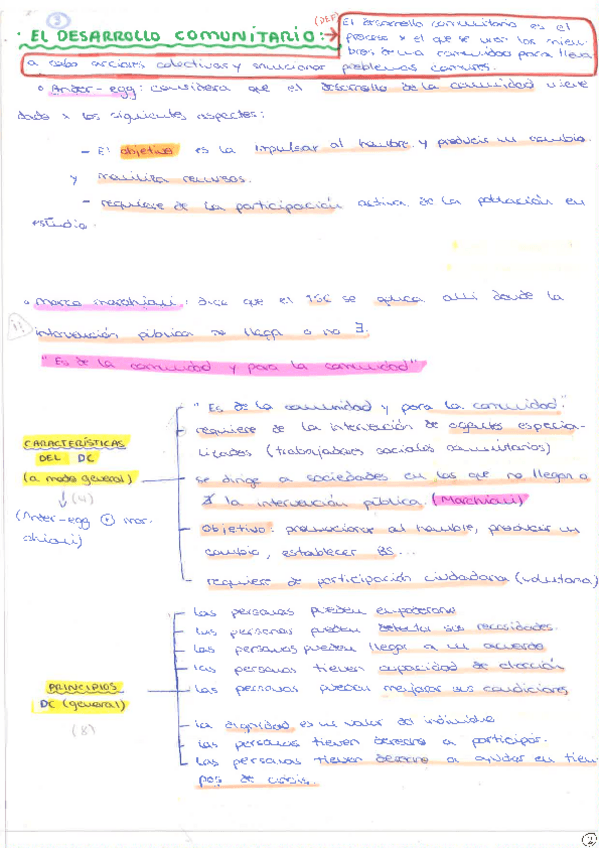 3
· EL DESARROLLO COMUNITARIO: → (DEF) El desarrollo comunitario es el
proceso x el que se unen los miem-
bros de una comunidad para lleva
a cabo acciones colectivas y solucionar problemas comunes.
• Ander-egg: considera que el desarrollo de la comunidad viene
dado x los siguientes aspectos:
- El objetivo es la impulsar al hombre y producir un cambio
y moviliza recursos.
- requiere de la participación activa de la población en
estudio.
• Marco marchioni: dice que el TSC se aplica allí donde la
intervención pública no llega o no ∃.
"Es de la comunidad y para la comunidad"
CARACTERÍSTICAS
DEL DC
(a modo general)
↓ (4)
(Ander-egg + mar-
chioni)
"Es de la comunidad y para la comunidad."
requiere de la intervención de agentes especia-
lizados (trabajadores sociales comunitarios)
se dirige a sociedades en las que no llega o
∄ la intervención pública. (Marchioni)
Objetivo: promocionar al hombre, producir un
cambio, establecer BS...
requiere de participación ciudadana (voluntaria)
PRINCIPIOS
DC (general)
(8)
las personas pueden empoderarse
las personas pueden detectar sus necesidades.
las personas pueden llegar a un acuerdo
las personas tienen capacidad de elección
las personas pueden mejorar sus condiciones
la dignidad es un valor del individuo
las personas tienen derecho a participar.
las personas tienen derecho a ayudar en tiem-
pos de crisis.
2